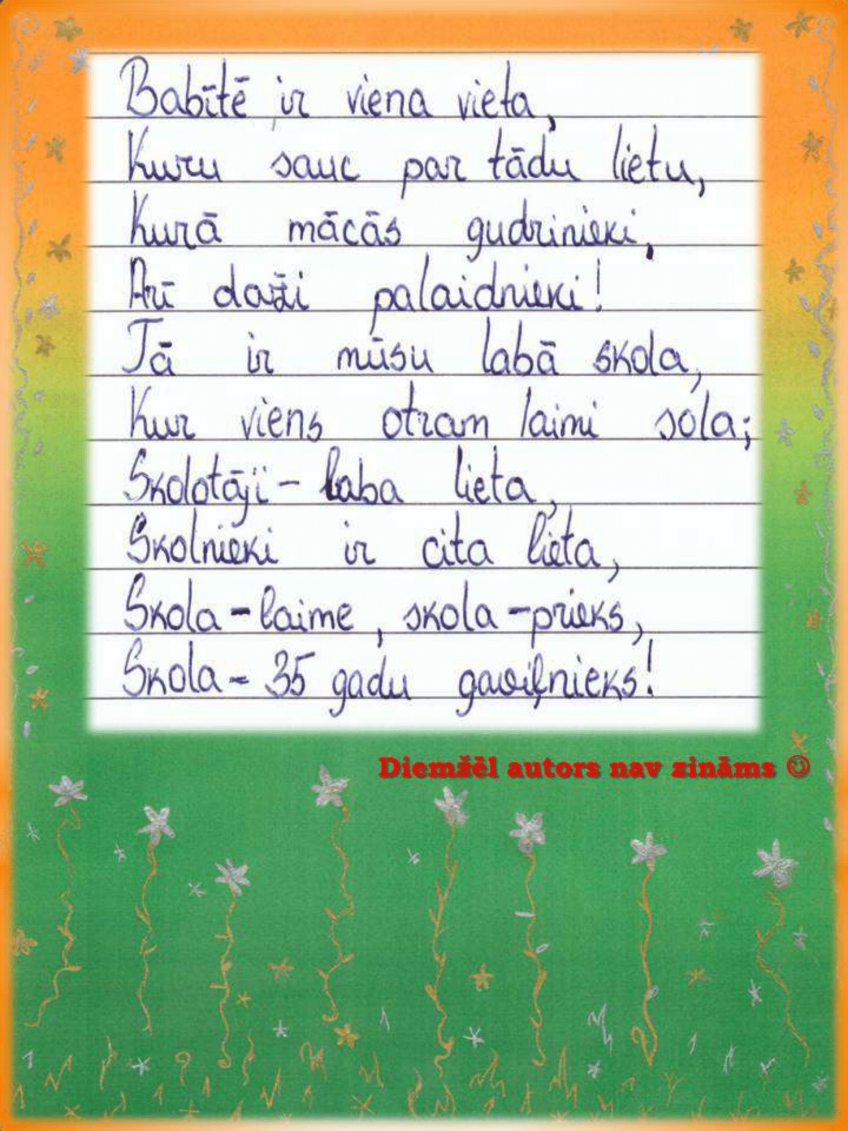 Babītē ir viena vieta,
Kuru sauc par tādu lietu,
Kurā mācās gudrinieki,
Arī daži palaidnieki!
Tā ir mūsu labā skola,
Kur viens otram laimi sola;
Skolotāji - laba lieta,
Skolnieki ir cita lieta,
Skola - laime, skola - prieks,
Skola - 35 gadu gaviļnieks!
Diemžēl autors nav zināms ☺